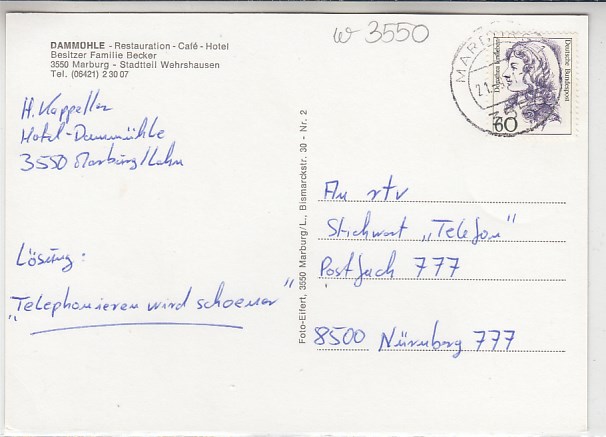 w 3550
DAMMÜHLE - Restauration - Café - Hotel
Besitzer Familie Becker
3550 Marburg - Stadtteil Wehrshausen
Tel. (06421) 2 30 07
H. Kappeller
Hotel-Dammühle
3550 Marburg/Lahn
Lösung:
"Telephonieren wird schoener"
Foto-Eifert, 3550 Marburg/L., Bismarckstr. 30 - Nr. 2
MARBURG
21.
Deutsche Bundespost
60
An rtv
Stichwort „Telefon"
Postfach 777
8500 Nürnberg 777